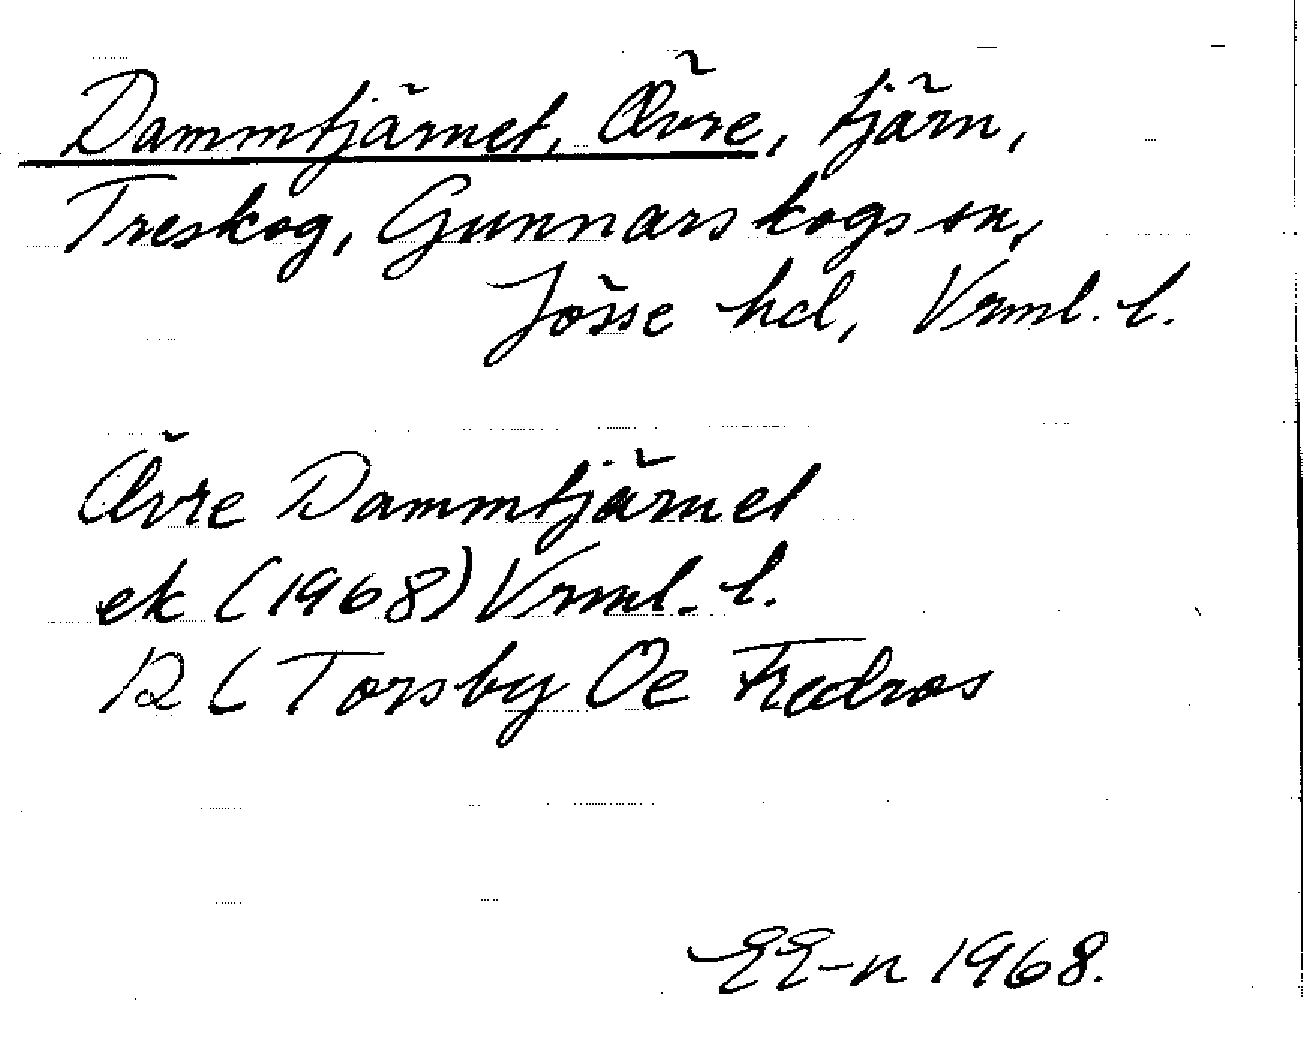 Dammtjärnet, Övre, tjärn,
Treskog, Gunnarskogs sn,
Jösse hd, Vrml. l.
Övre Dammtjärnet
ek (1968) Vrml. l.
12 C Torsby Oe Fredros
EE-n 1968.